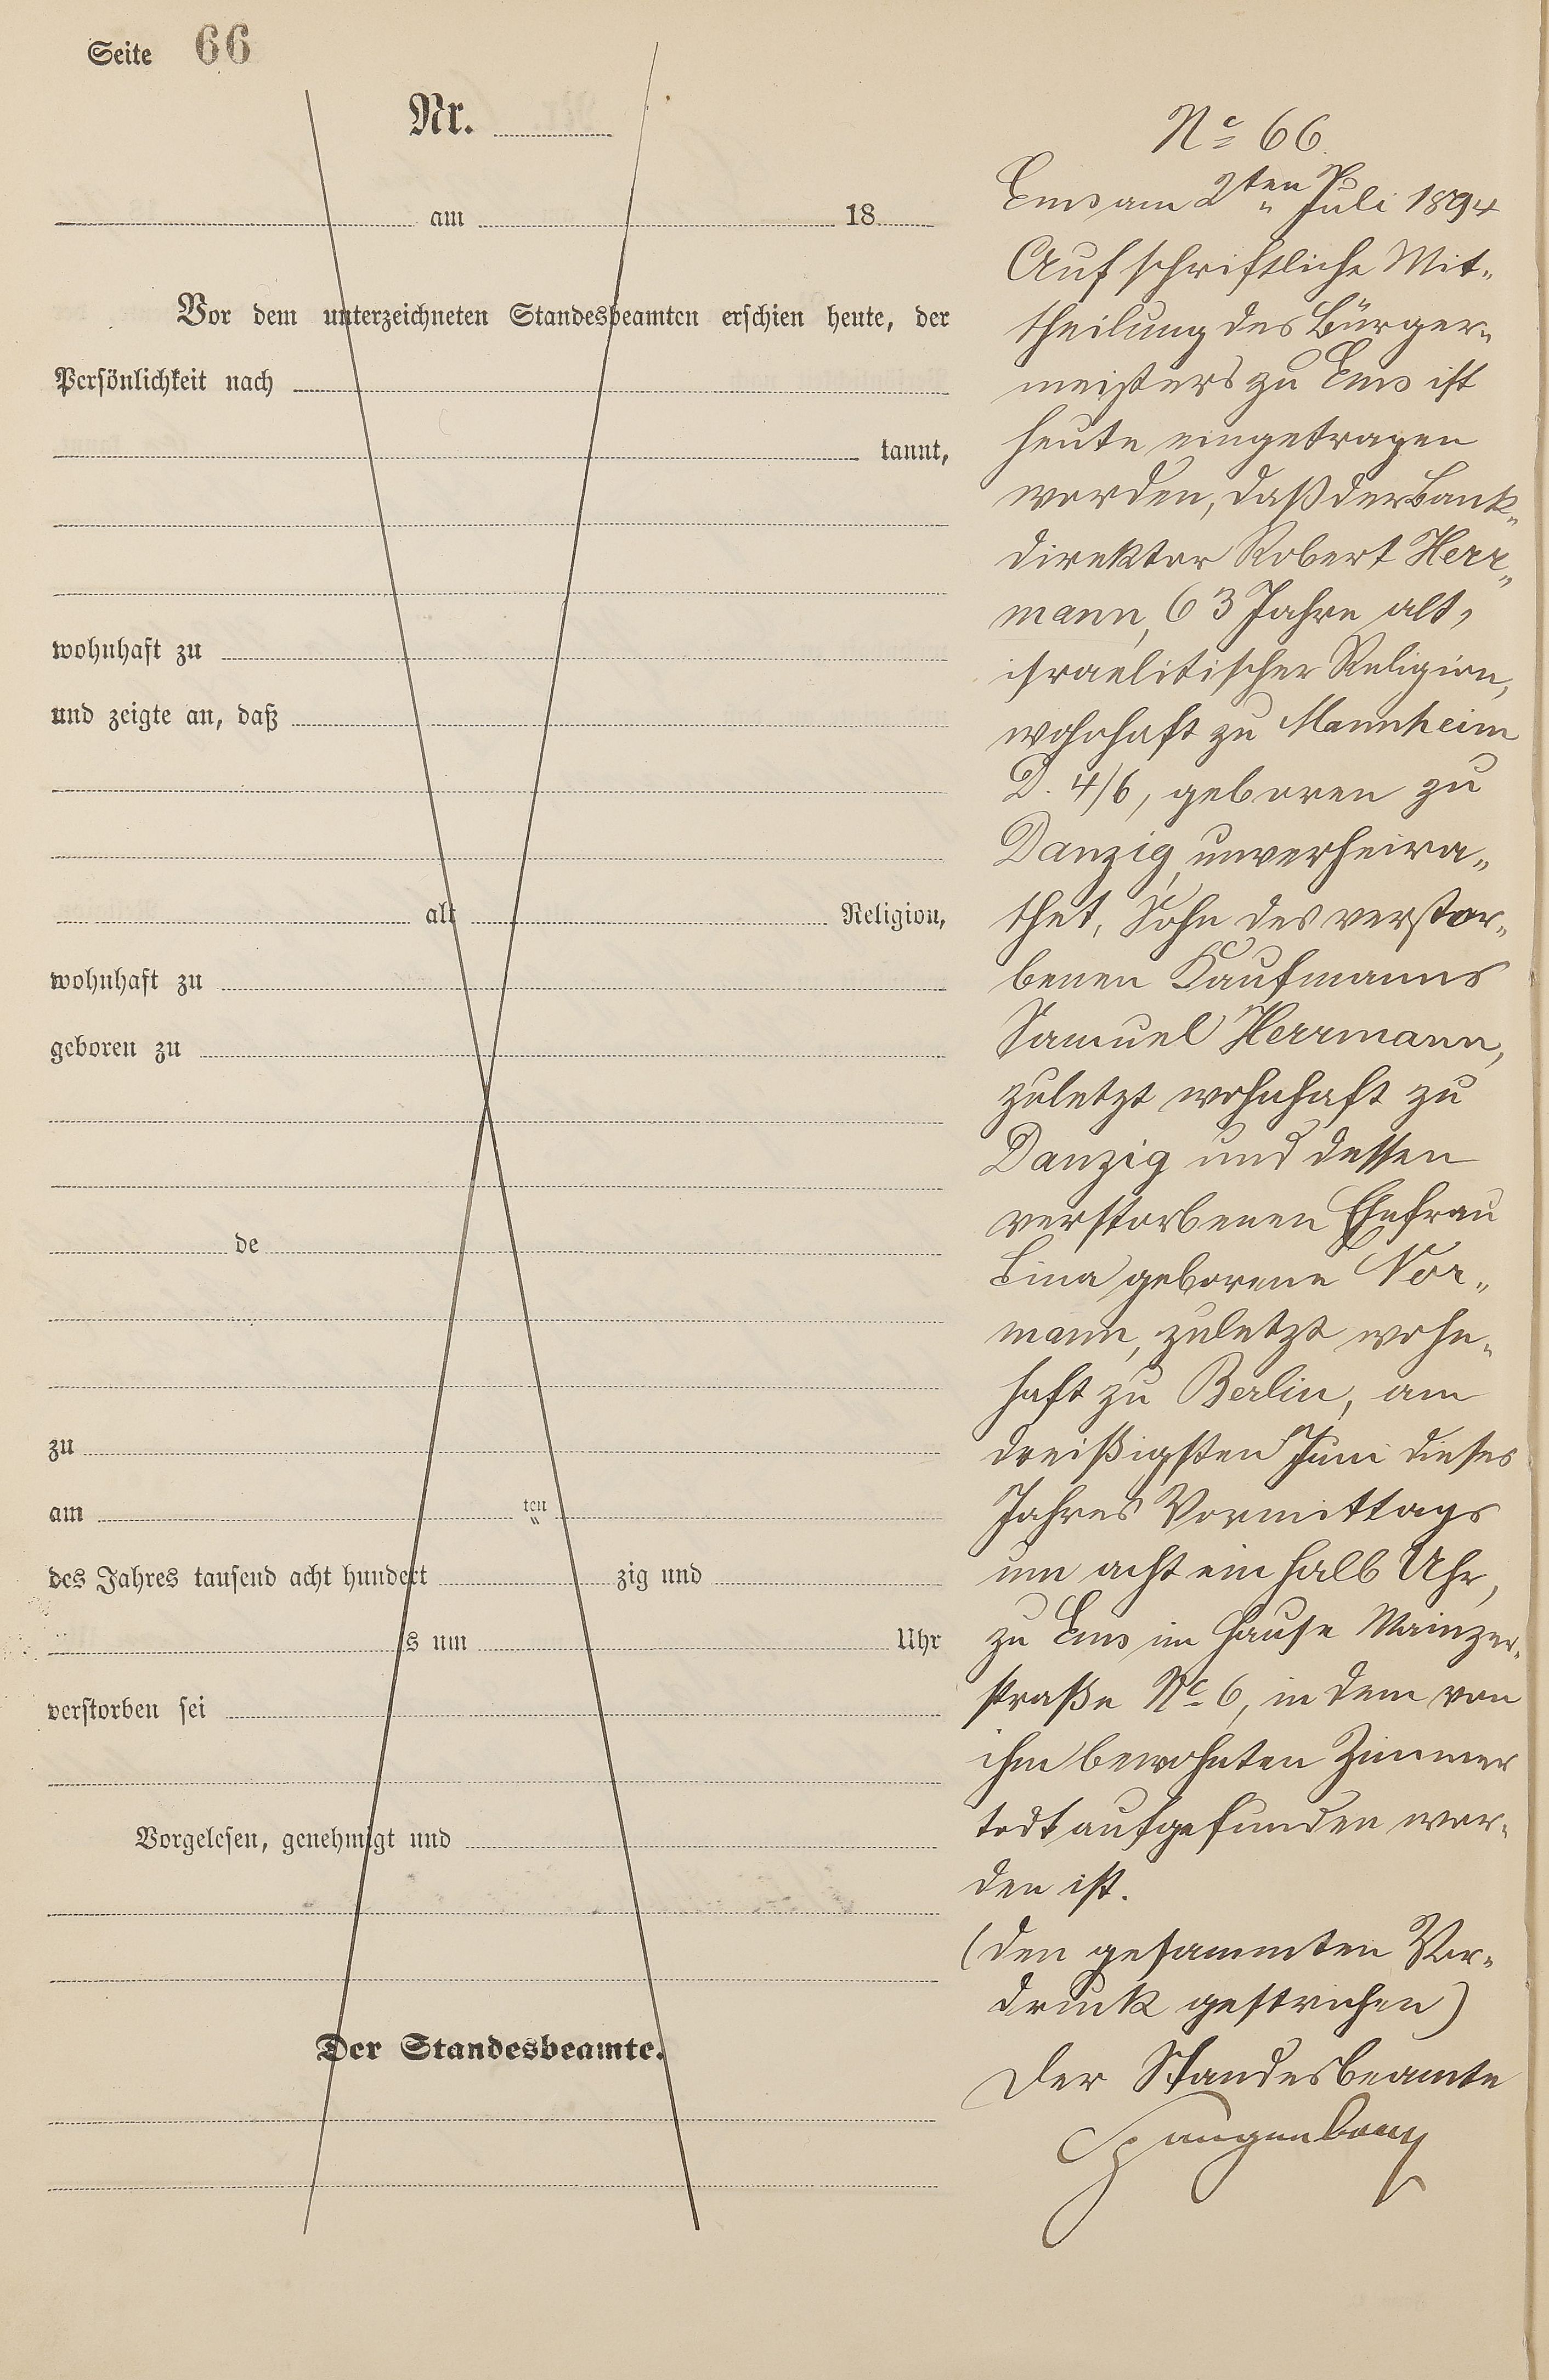 Seite 66
Nr.
am 18
Vor dem unterzeichneten Standesbeamten erschien heute, der
Persönlichkeit nach
kannt,
wohnhaft zu
und zeigte an, daß
alt Religion,
wohnhaft zu
geboren zu
de
zu
am ten
des Jahres tausend acht hundert zig und
s um Uhr
verstorben sei
Vorgelesen, genehmigt und
Der Standesbeamte.
No 66.
Ems am 2ten Juli 1894
Auf schriftliche Mit-
theilung des Bürger-
meisters zu Ems ist
heute eingetragen
worden, daß der Bank-
direktor Robert Herr-
mann, 63 Jahre alt,
israelitischer Religion,
wohnhaft zu Mannheim
D. 4/6, geboren zu
Danzig, unverheira-
thet, Sohn des verstor-
benen Kaufmanns
Samuel Herrmann,
zuletzt wohnhaft zu
Danzig und dessen
verstorbenen Ehefrau
Lina geborene Nor-
mann, zuletzt wohn-
haft zu Berlin, am
dreißigsten Juni dieses
Jahres Vormittags
um acht ein halb Uhr,
zu Ems im Hause Mainzer-
straße No 6, in dem von
ihm bewohnten Zimmer
todt aufgefunden wor-
den ist.
(Den gesammten Vor-
druck gestrichen)
Der Standesbeamte
Spangenberg